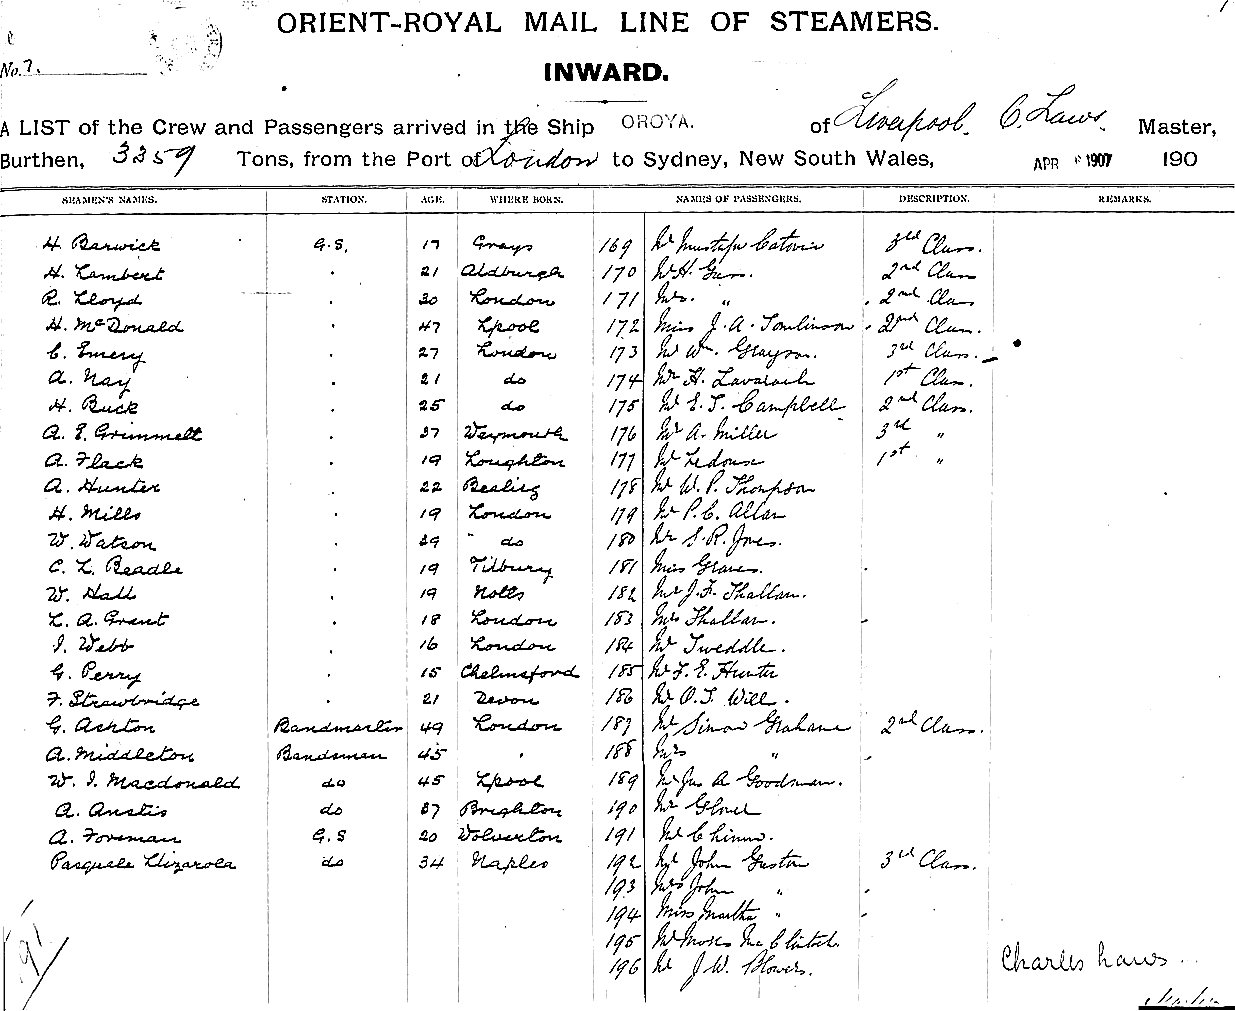 ORIENT-ROYAL MAIL LINE OF STEAMERS.
No. 7.
INWARD.
A LIST of the Crew and Passengers arrived in the Ship OROYA. of Liverpool. C. Laws. Master,
Burthen, 3359 Tons, from the Port of London to Sydney, New South Wales, APR 1907 190
SEAMEN'S NAMES. STATION. AGE. WHERE BORN. NAMES OF PASSENGERS. DESCRIPTION. REMARKS.
H. Barwick G.S. 17 Grays 169 Mr Mustafa 3rd Class.
H. Lambert 21 Aldburgh 170 Mr H. 2nd Class
R. Lloyd 30 London 171 Mrs. " 2nd Class
H. McDonald 47 Lpool 172 Miss J. A. Tomlinson 2nd Class.
C. Emery 27 London 173 Mr Wm. Grayson. 3rd Class.
A. Nay 21 do 174 Mr H. 1st Class.
H. Buck 25 do 175 Mr E. T. Campbell 2nd Class.
A. E. Grimmett 37 Weymouth 176 Mr A. Miller 3rd "
A. Flack 19 Loughton 177 Mr Ledoux 1st "
A. Hunter 22 178 Mr W. P. Thompson
H. Mills 19 London 179 Mr P. C. Allan
W. Watson 39 " do 180 Mr S. R. Jones.
C. L. Beadle 19 Tilbury 181 Miss Graves.
W. Hall 19 Notts 182 Mr J. F. Thallan.
L. A. Grant 18 London 183 Mrs Thallan.
I. Webb 16 London 184 Mr Tweddle.
G. Perry 15 Chelmsford 185 Mr F. E. Hunter
F. Strawbridge 21 Devon 186 Mr O. T. Will.
G. Ashton Bandmaster 49 London 187 Mr Simon Grahame 2nd Class.
A. Middleton Bandsman 45 " 188 Mrs "
W. I. Macdonald do 45 Lpool 189 Mr Jas A Goodman.
A. Anstis do 37 Brighton 190 Mr Glover
A. Foreman G.S 20 Wolverton 191 Mr Chinn.
Pasquale Lizarola do 34 Naples 192 Mr John Guston 3rd Class.
193 Mrs John "
194 Miss Martha "
195 Mr Moses
196 Mr J. W. Blowers.
Charles Laws
Master